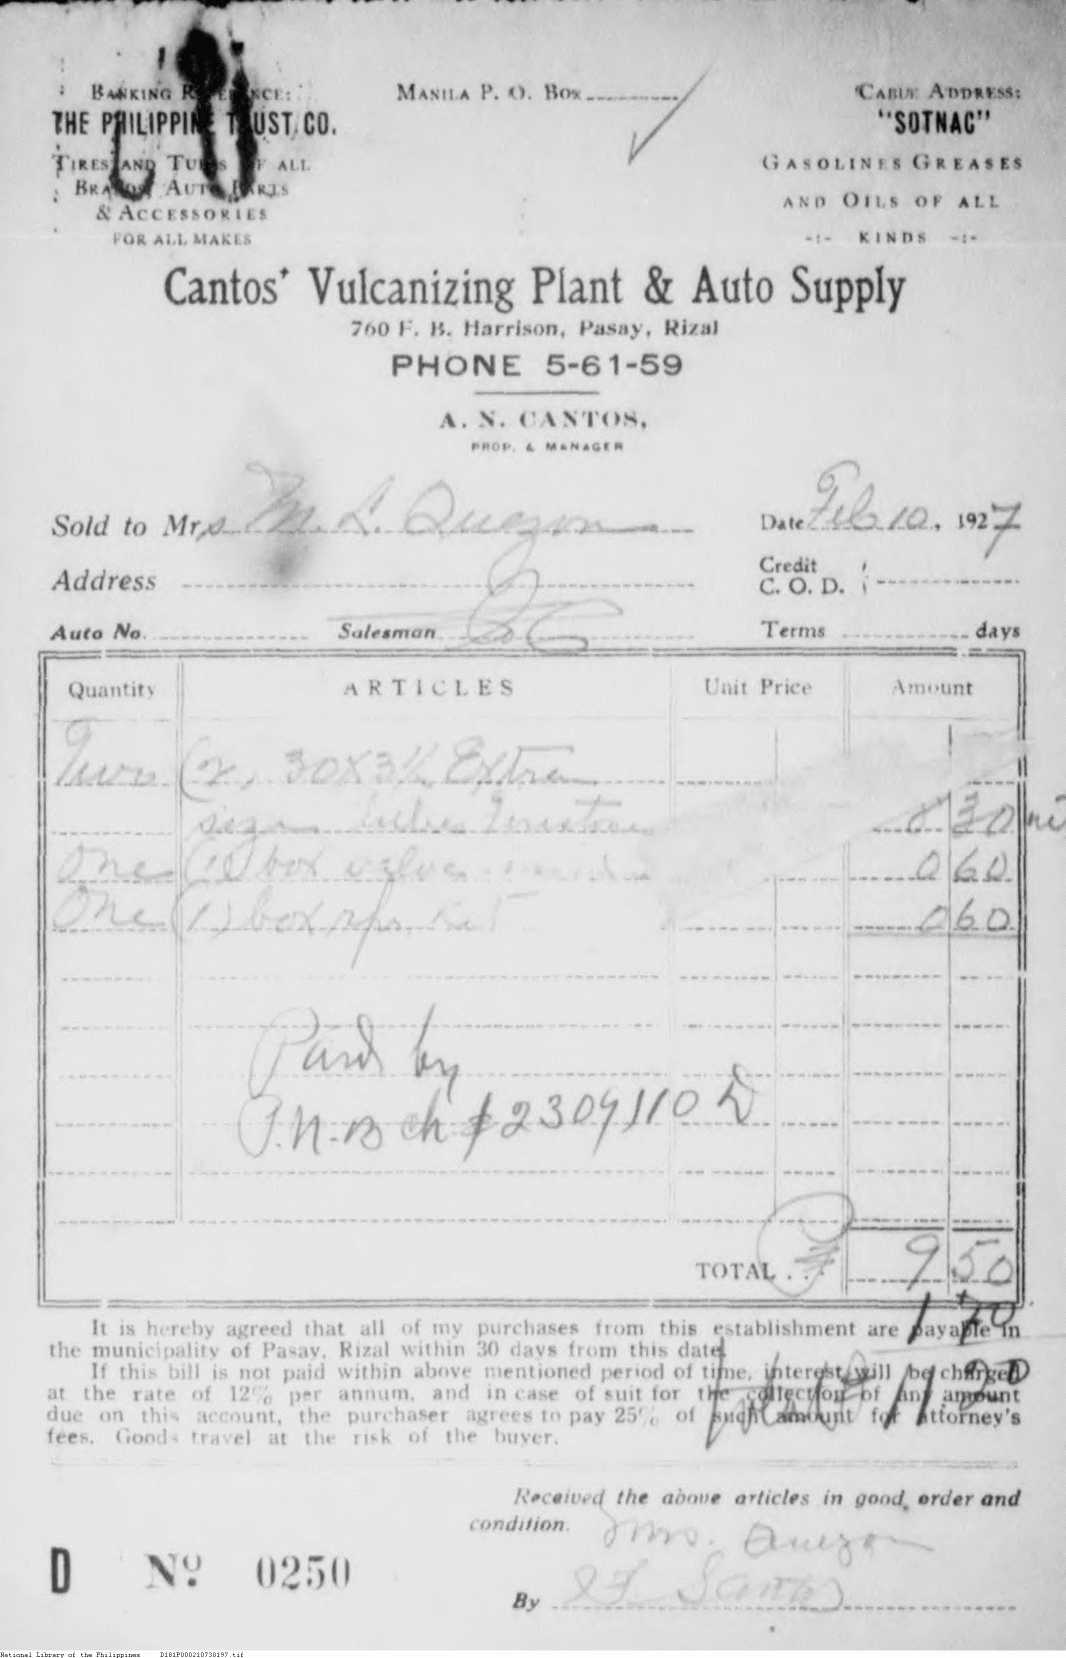 BANKING REFERENCE:
THE PHILIPPINE TRUST CO.
TIRES AND TUBES OF ALL
BRANDS, AUTO PARTS
& ACCESSORIES
FOR ALL MAKES
MANILA P. O. BOX
CABLE ADDRESS:
"SOTNAC"
GASOLINES GREASES
AND OILS OF ALL
-:- KINDS -:-
Cantos' Vulcanizing Plant & Auto Supply
760 F. B. Harrison, Pasay, Rizal
PHONE 5-61-59
A. N. CANTOS,
PROP. & MANAGER
Sold to Mrs M. L. Quezon
Date Feb 10, 1927
Address
Credit
C. O. D.
Auto No. Salesman
Terms days
Quantity ARTICLES Unit Price Amount
Two (2) 30x3½ Extra
size tubes 8 30
One (1) box valve 0 60
One (1) box rpr. Kit 0 60
Paid by
P.N.B ch # 2309110 D
TOTAL . . ₱ 9 50
1 70
11.20
It is hereby agreed that all of my purchases from this establishment are payable in
the municipality of Pasay, Rizal within 30 days from this date.
If this bill is not paid within above mentioned period of time, interest will be charged
at the rate of 12% per annum, and in case of suit for the collection of any amount
due on this account, the purchaser agrees to pay 25% of such amount for attorney's
fees. Goods travel at the risk of the buyer.
Received the above articles in good order and
condition.
Mrs. Quezon
D No. 0250
By
National Library of the Philippines D181P000210738197.tif